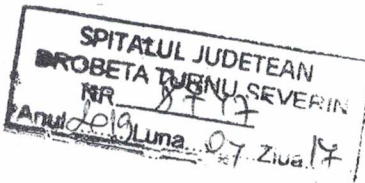 SPITALUL JUDETEAN
DROBETA TURNU SEVERIN
NR
Anul 2019 Luna 07 Ziua 17